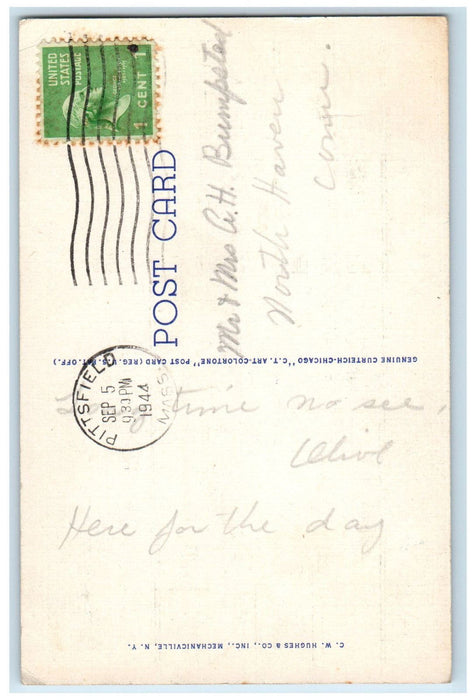 UNITED
STATES
POSTAGE
1 CENT 1
POST CARD
PITTSFIELD
SEP 5
930 PM
1944
MASS.
Mr & Mrs A. H. Bumpsted
North Haven
Conn.
GENUINE CURTEICH-CHICAGO "C.T. ART-COLORTONE" POST CARD (REG. U.S. PAT. OFF.)
Long time no see,
Olive
Here for the day
C. W. HUGHES & CO., INC., MECHANICVILLE, N. Y.